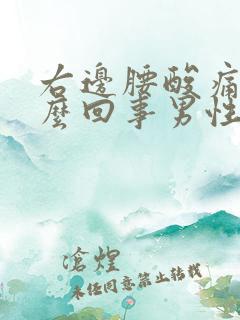 右邊腰酸痛
麼回事男性
滄煌
未任同意禁止转载